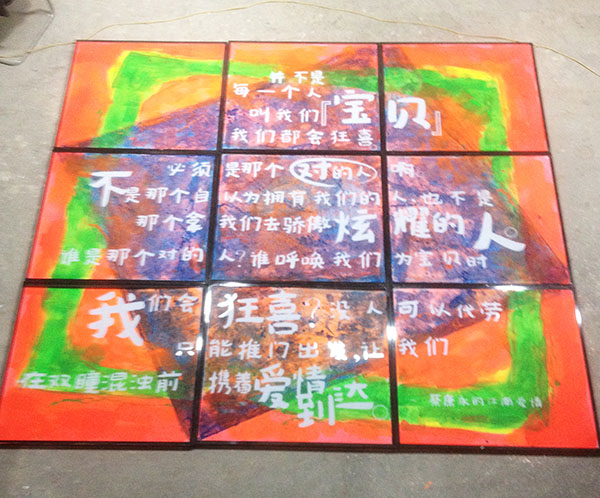 并不是
每一个人
叫我们『宝贝』
我们都会狂喜
必须是那个对的人啊
不是那个自以为拥有我们的人,也不是
那个拿我们去骄傲炫耀的人。
谁是那个对的人?谁呼唤我们为宝贝时
我们会狂喜?没人可以代劳
只能推门出发,让我们
在双瞳混浊前携着爱情到达。
蔡康永的江湖爱情